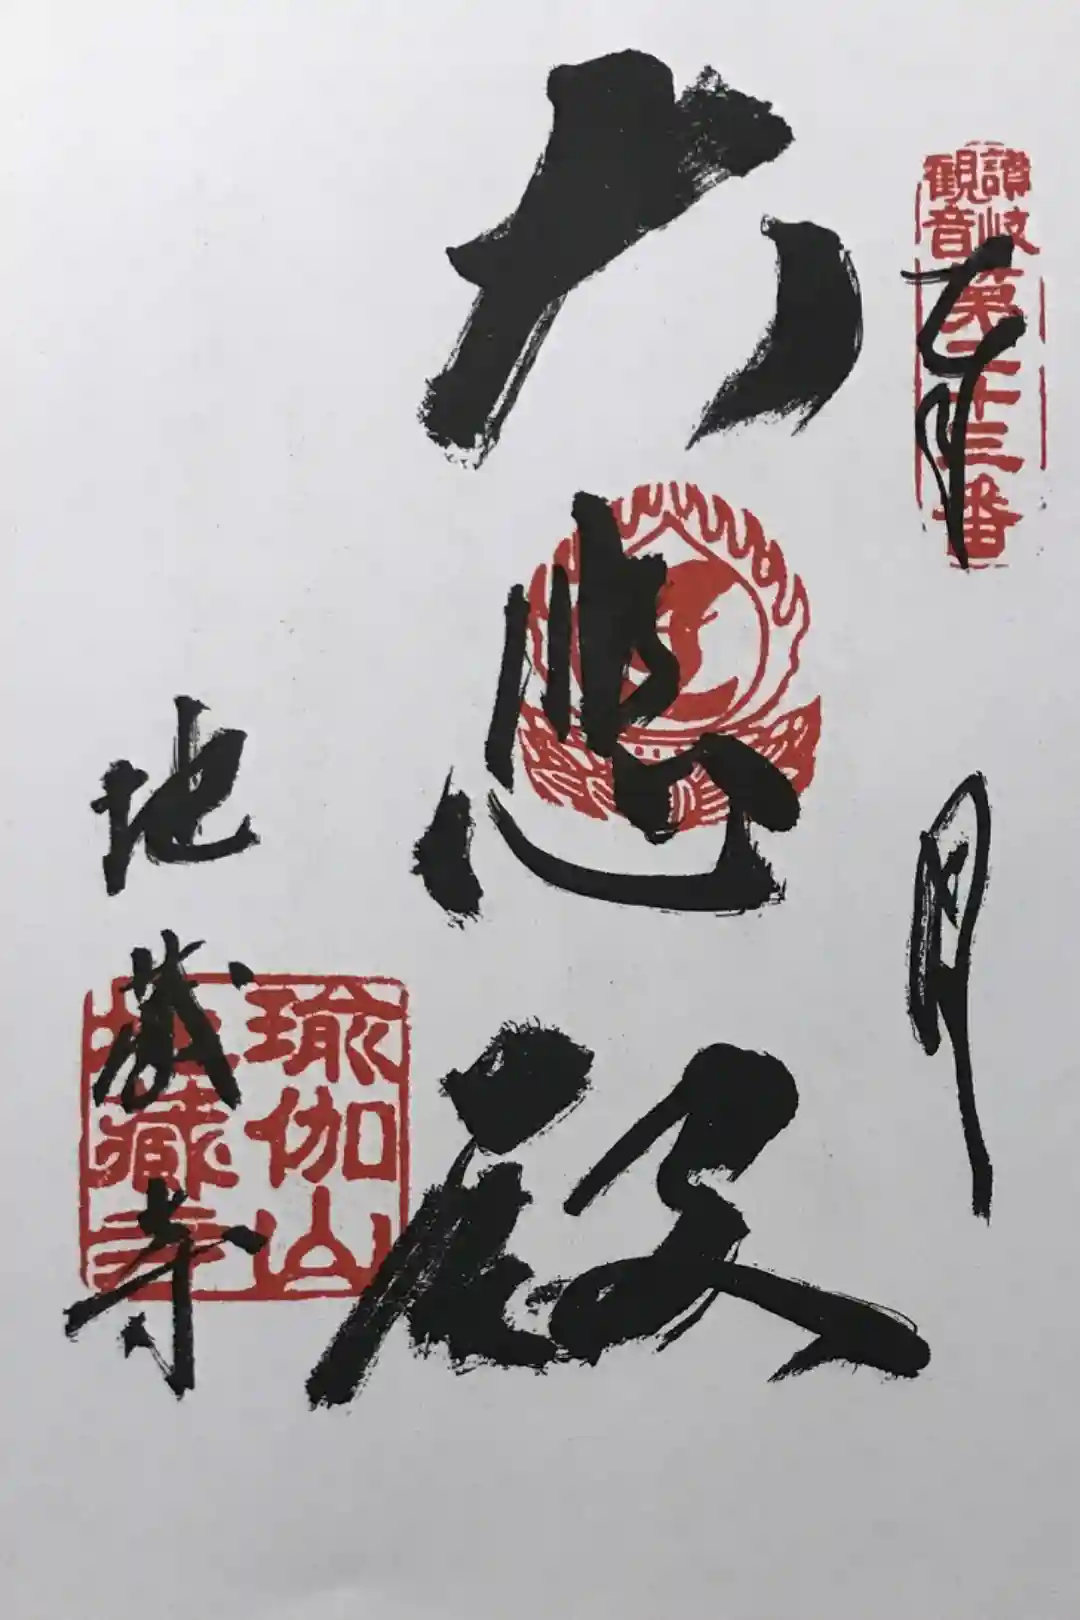 讃岐
観音
第二十三番
大悲殿
地蔵寺
瑜伽山
地蔵寺